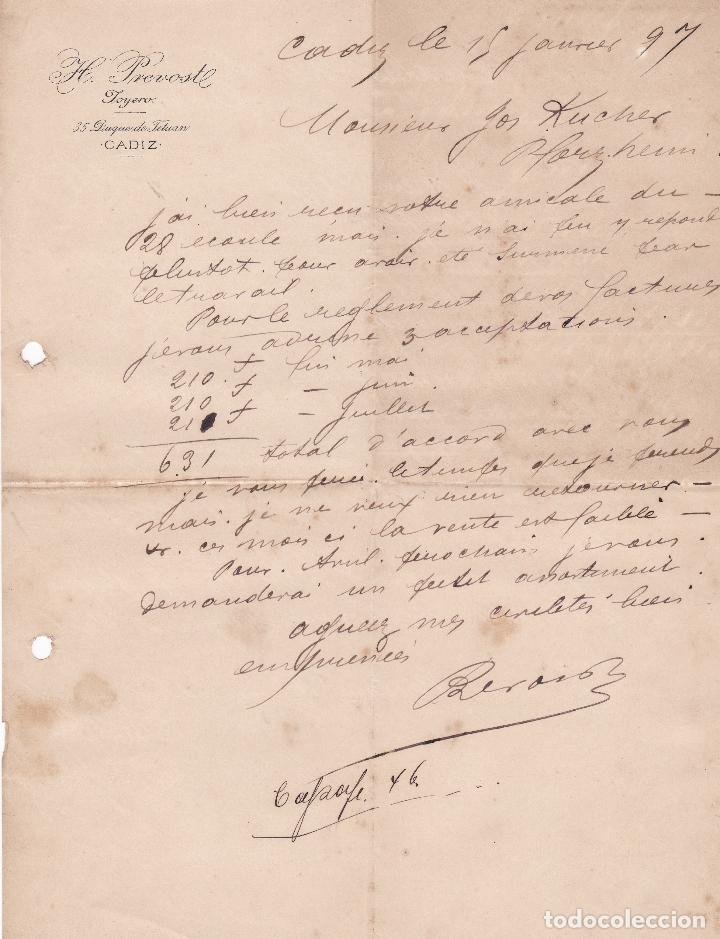 H. Prevost
Joyero
35 Duque de Tetuan
·CADIZ·
Cadiz le 15 janvier 97
Monsieur Jos Kucher
Pforzheim.
j'ai bien recu votre amicale du
28 ecoulé mais je n'ai pu y repondre
plustot. pour avoir eté surmené par
le travail.
Pour le reglement de vos factures
je vous adresse 3 acceptations.
210. f fin mai
210 f — juin.
211 f — juillet
631 total d'accord avec vous
je vous le temps que je prends
mais. je ne veux rien retourner —
ces mois ci la vente est faible —
Pour. Avril. prochain je vous.
demanderai un petit assortiment.
agreez mes civilités bien
empressées
Prevost
46
todocoleccion